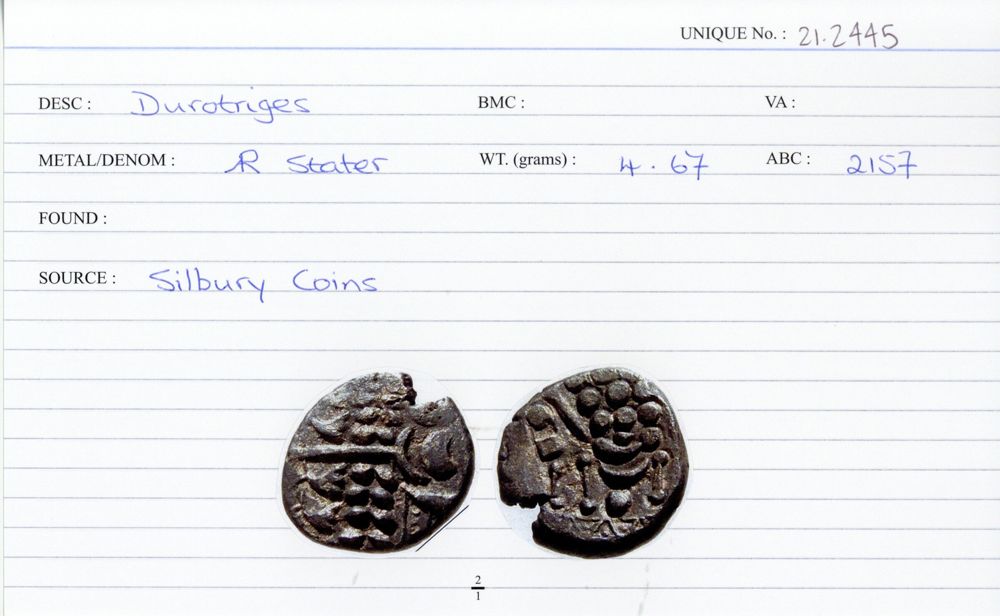 UNIQUE No. : 21.2445
DESC : Durotriges BMC : VA :
METAL/DENOM : AR Stater WT. (grams) : 4.67 ABC : 2157
FOUND :
SOURCE : Silbury Coins
2
1